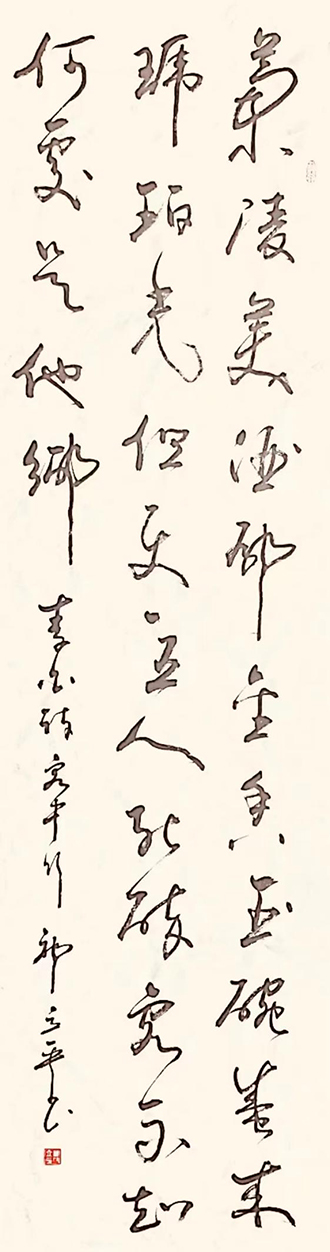 蘭陵美酒郁金香玉碗盛来
琥珀光但使主人能醉客不知
何處是他鄉 李白詩客中行